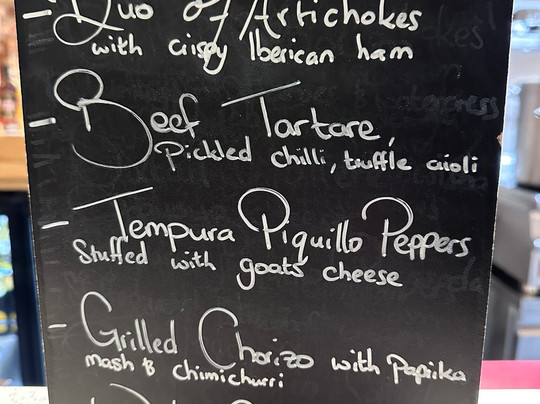 - Duo of Artichokes
with crispy Iberican ham
- Beef Tartare,
Pickled chilli, truffle aioli
- Tempura Piquillo Peppers
Stuffed with goats cheese
- Grilled Chorizo with Paprika
mash & chimichurri